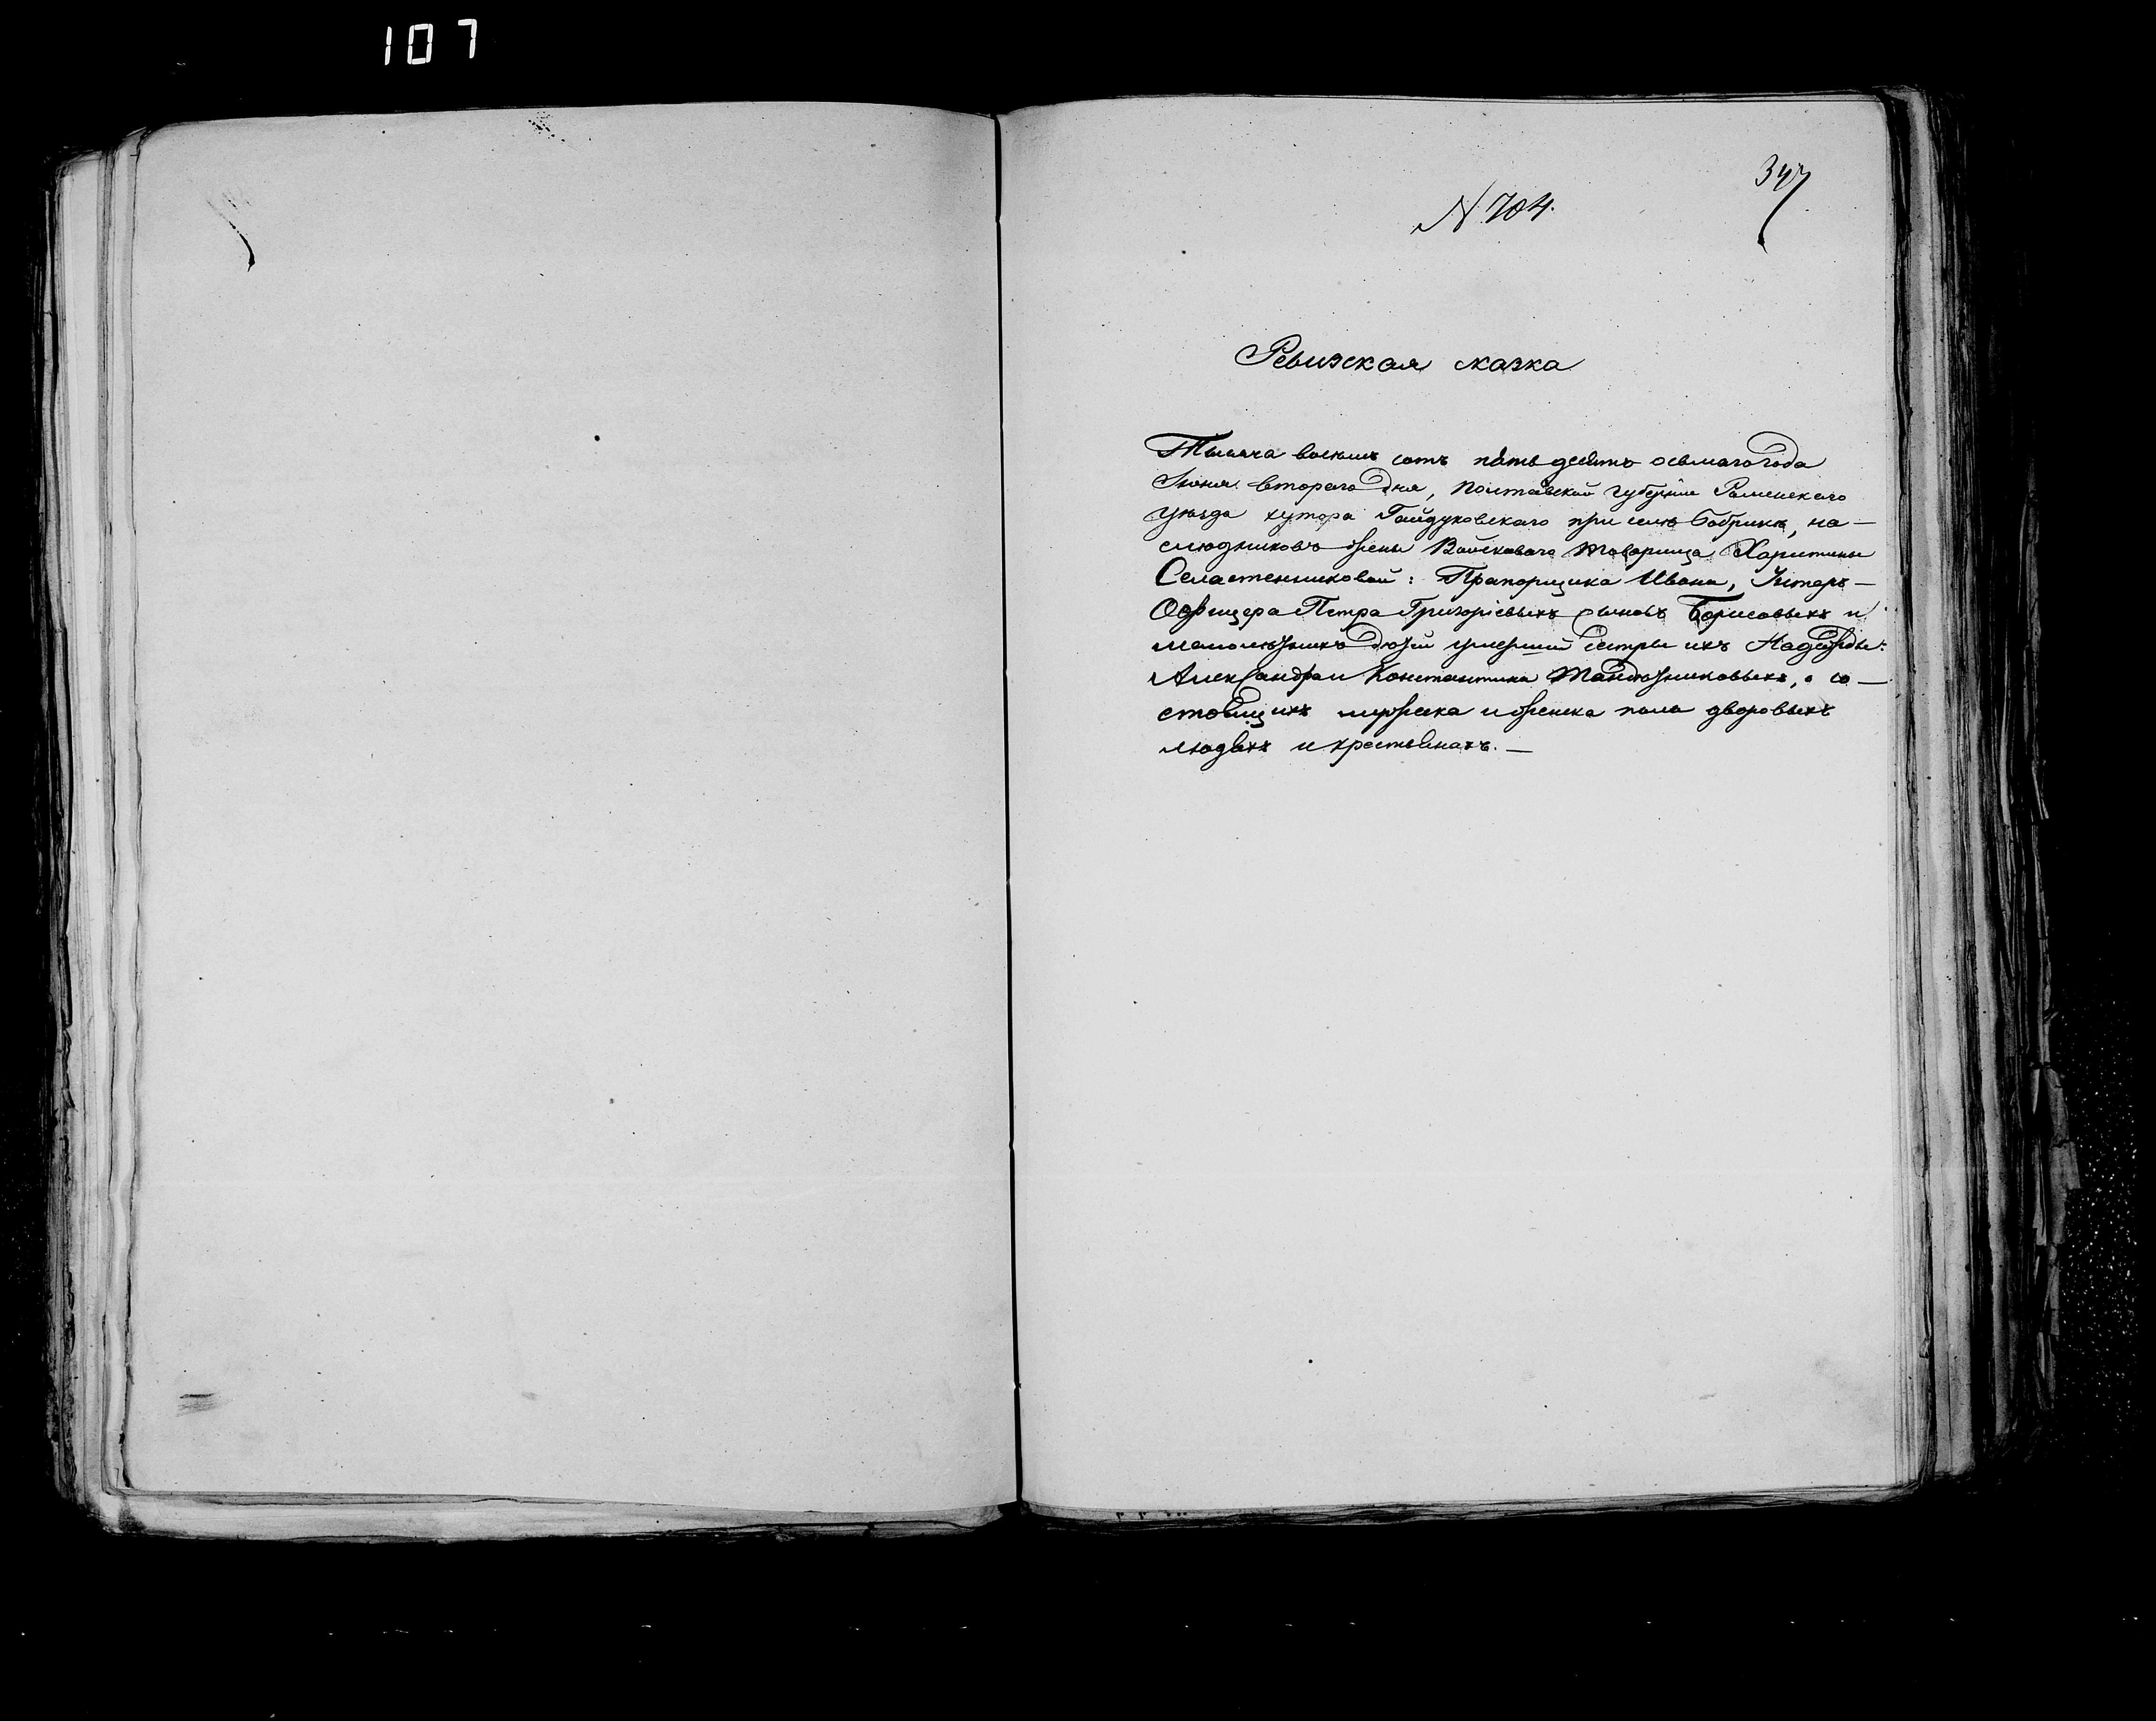 107
347
N 704.
Ревизская сказка
Тысяча восемь сотъ пятьдесятъ осьмаго года
Іюня втораго дня, Полтавской губерніи Роменскаго
уѣзда хутора Гайдуковскаго при селѣ Бобрикѣ, на-
слѣдниковъ жены Войсковаго товарища Харитины
Селастенниковой: Прапорщика Ивана, Унтеръ-
Офицера Петра Григорьевыхъ сыновъ Борисовыхъ и
малолѣтнихъ дѣтей умершей сестры ихъ Надежды:
Александра и Константина о со-
стоящихъ мужеска и женска пола дворовыхъ
людяхъ и крестьянахъ. —